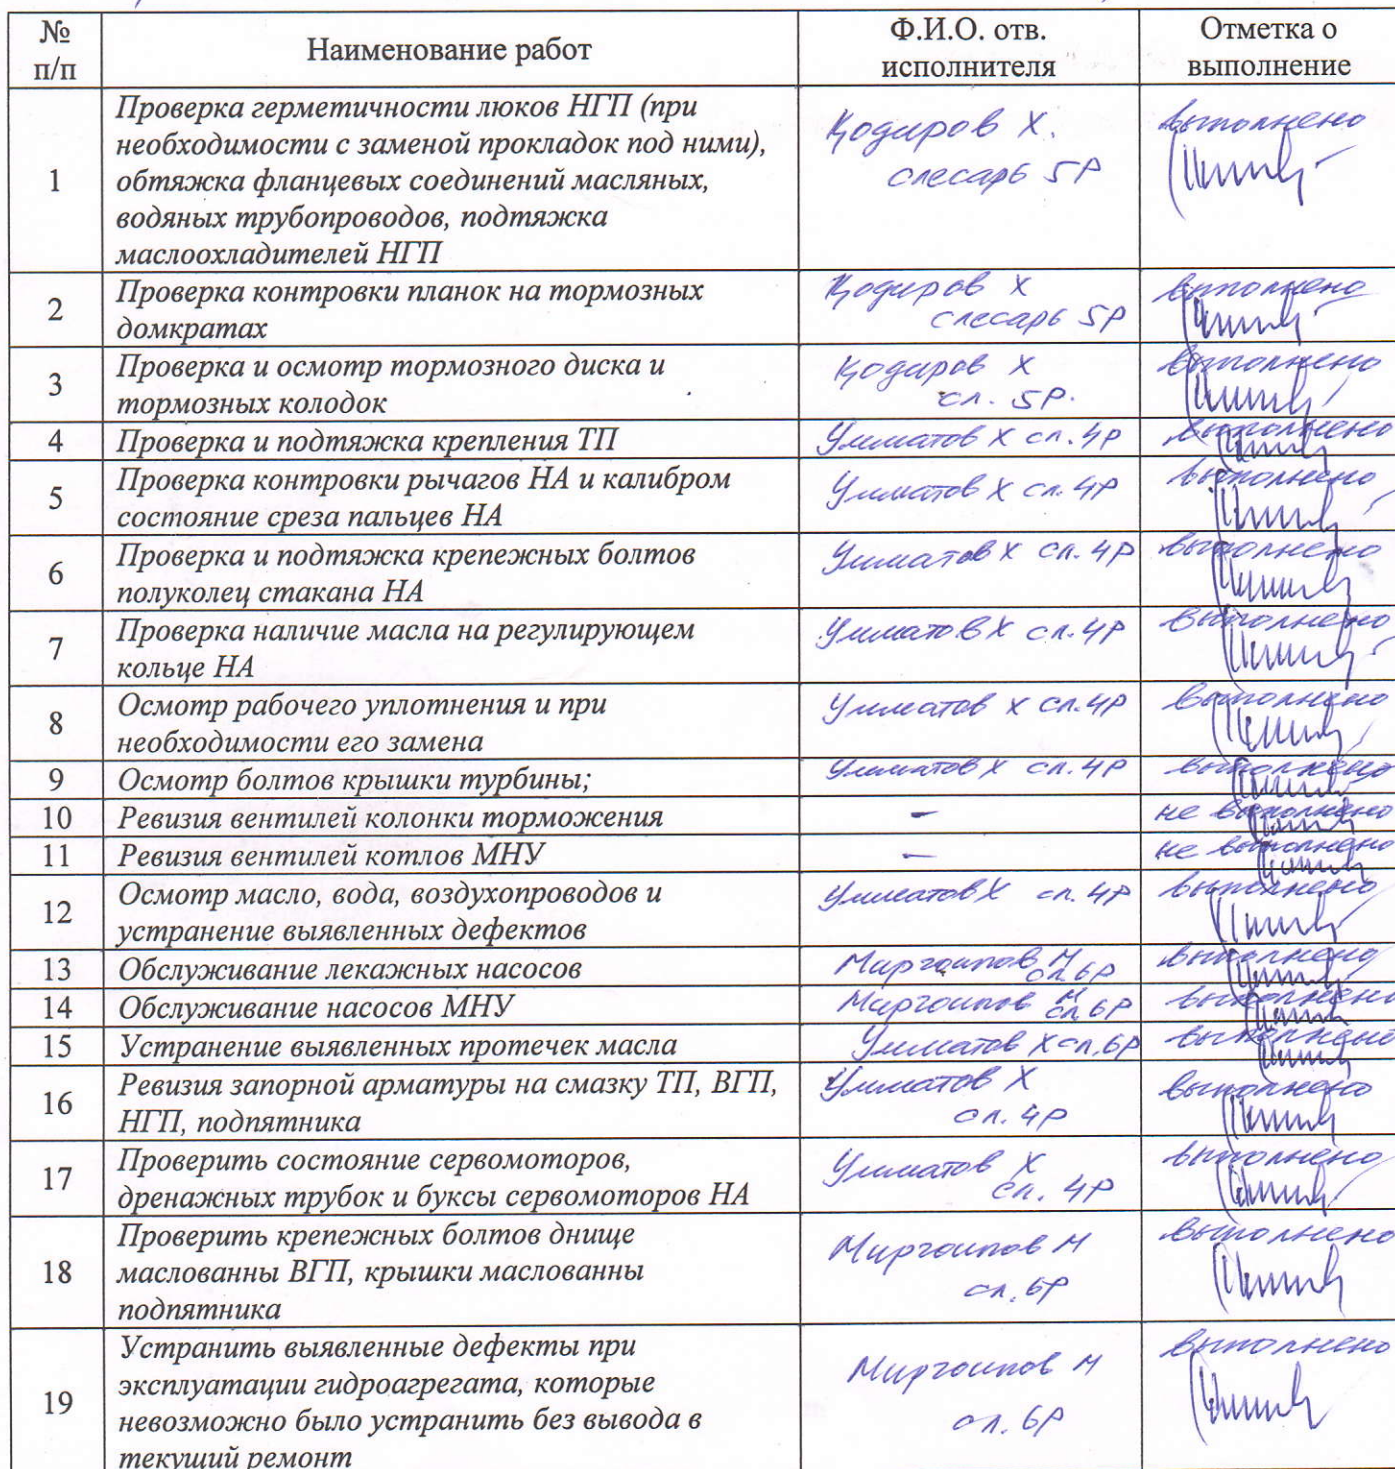 № п/п Наименование работ Ф.И.О. отв. исполнителя Отметка о выполнение
1 Проверка герметичности люков НГП (при
необходимости с заменой прокладок под ними),
обтяжка фланцевых соединений масляных,
водяных трубопроводов, подтяжка
маслоохладителей НГП
Қодиров Х.
слесарь 5р
выполнено
2 Проверка контровки планок на тормозных
домкратах
Қодиров Х
слесарь 5р
выполнено
3 Проверка и осмотр тормозного диска и
тормозных колодок
Қодиров Х
сл. 5р.
выполнено
4 Проверка и подтяжка крепления ТП Умматов Х сл. 4р выполнено
5 Проверка контровки рычагов НА и калибром
состояние среза пальцев НА
Умматов Х сл. 4р
выполнено
6 Проверка и подтяжка крепежных болтов
полуколец стакана НА
Умматов Х сл. 4р
выполнено
7 Проверка наличие масла на регулирующем
кольце НА
Умматов Х сл. 4р
выполнено
8 Осмотр рабочего уплотнения и при
необходимости его замена
Умматов Х сл. 4р
выполнено
9 Осмотр болтов крышки турбины; Умматов Х сл. 4р выполнено
10 Ревизия вентилей колонки торможения – не выполнено
11 Ревизия вентилей котлов МНУ – не выполнено
12 Осмотр масло, вода, воздухопроводов и
устранение выявленных дефектов
Умматов Х сл. 4р
выполнено
13 Обслуживание лекажных насосов М сл 6р выполнено
14 Обслуживание насосов МНУ М сл 6р выполнено
15 Устранение выявленных протечек масла Умматов Х сл. 6р выполнено
16 Ревизия запорной арматуры на смазку ТП, ВГП,
НГП, подпятника
Умматов Х
сл. 4р
выполнено
17 Проверить состояние сервомоторов,
дренажных трубок и буксы сервомоторов НА
Умматов Х
сл. 4р
выполнено
18 Проверить крепежных болтов днище
маслованны ВГП, крышки маслованны
подпятника
М
сл. 6р
выполнено
19 Устранить выявленные дефекты при
эксплуатации гидроагрегата, которые
невозможно было устранить без вывода в
текущий ремонт
М
сл. 6р
выполнено